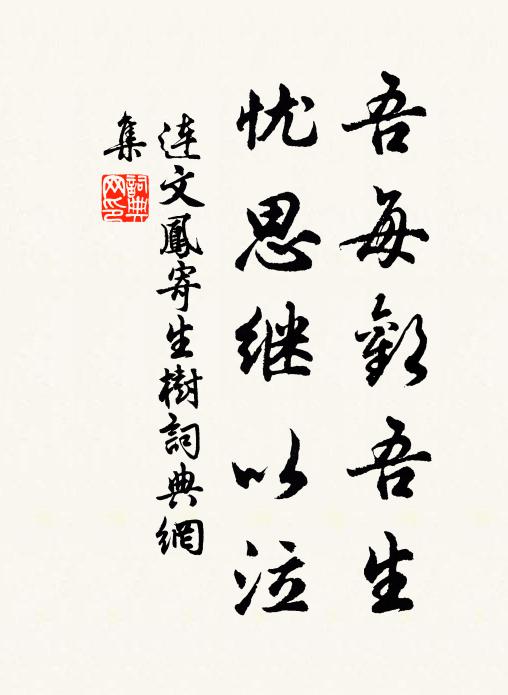 吾每觀吾生
忧思继以泣
連文鳳寄生樹詞典網
集
詞典网印